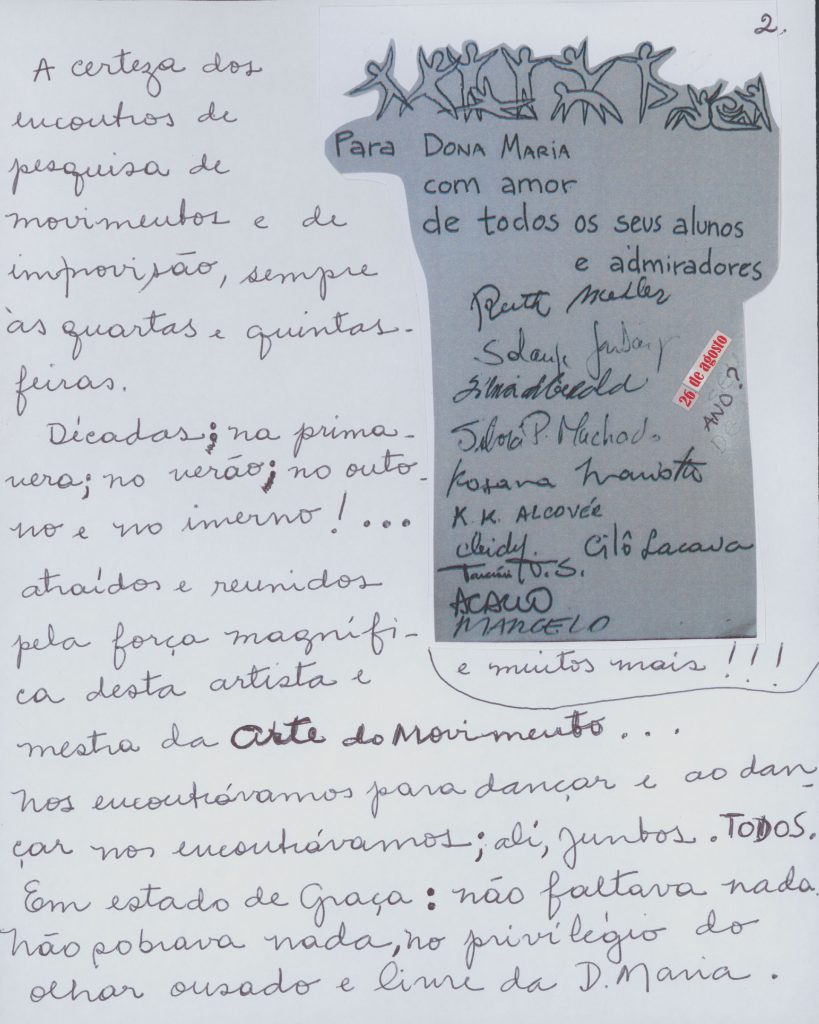 2.
A certeza dos
encontros de
pesquisa de
movimentos e de
improvisão, sempre
às quartas e quintas-
feiras.
Décadas; na prima-
vera; no verão; no outo-
no e no inverno! ...
atraídos e reunidos
pela força magnífi-
ca desta artista e
mestra da Arte do Movimento...
Nos encontrávamos para dançar e ao dan-
çar nos encontrávamos; ali, juntos. TODOS.
Em estado de Graça: não faltava nada
Não sobrava nada, no privilégio do
olhar ousado e livre da D. Maria.
Para DONA MARIA
com amor
de todos os seus alunos
e admiradores
Ruth Mehler
Solange
Silvia P. Machado
Rosana
K.K. ALCOVÉE
Cleidy. Cilô Lacava
MARCELO
26 de agosto
ANO?
e muitos mais!!!